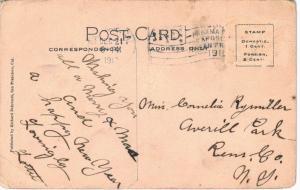 POST CARD
CORRESPONDENCE
ADDRESS ONLY
STAMP
DOMESTIC,
1 CENT.
FOREIGN,
2 CENTS.
Published by Richard Behrendt, San Francisco, Cal.
Wishing you
all a Merry Xmas
and
a Happy New Year
Lovingly
Miss. Cornelia Rysmiller
Averill Park
Rens. Co.
N. Y.